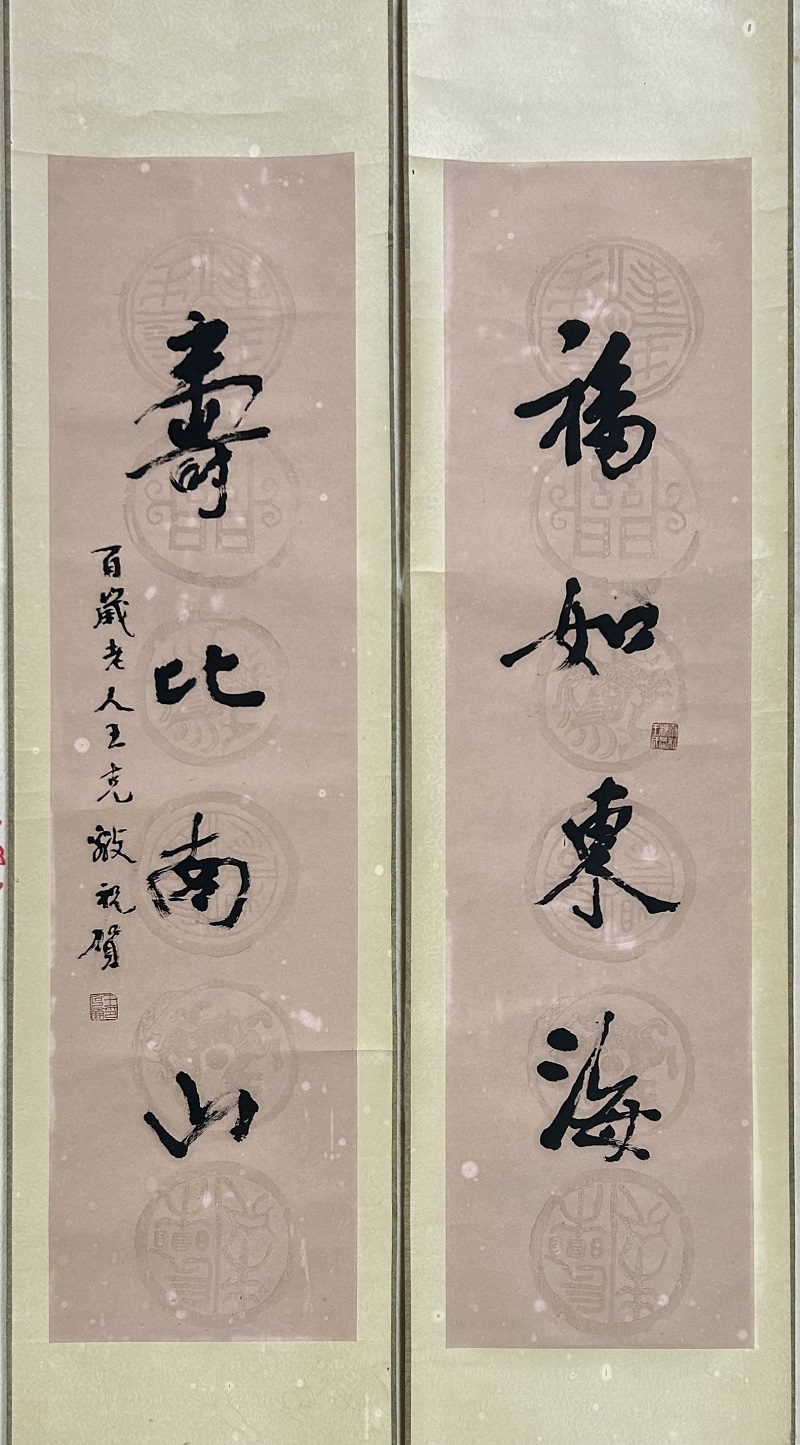 福如東海
壽比南山
百歲老人王克敬祝賀